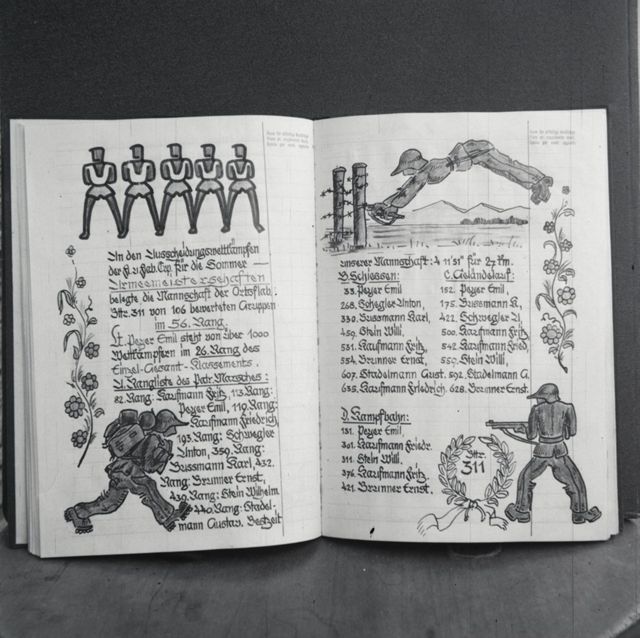 In den Ausscheidungswettkämpfen
der H. u. Geb. Trp. für die Sommer —
Armeemeisterschaften
belegte die Mannschaft der Ortsflab.
Bttr. 311 von 106 bewerteten Gruppen
im 56. Rang.
Lt. Peyer Emil steht von über 1000
Wettkämpfern im 26. Rang des
Einzel-Gesamt-Klassements.
A. Rangliste des Patr. Marsches:
82. Rang: Kaufmann Fritz, 113. Rang:
Peyer Emil, 119. Rang:
Kaufmann Friedrich,
193. Rang: Schwegler
Anton, 359. Rang:
Bussmann Karl, 432.
Rang: Brunner Ernst,
439. Rang: Stein Wilhelm
440. Rang: Stadel-
mann Gustav. Bestzeit
unserer Mannschaft: 4 11'51" für 27 Km.
B. Schiessen:
53. Peyer Emil
268. Schwegler Anton,
330. Bussmann Karl,
459. Stein Willi,
531. Kaufmann Fritz,
554. Brunner Ernst
607. Stadelmann Gust.
635. Kaufmann Friedrich.
C. Geländelauf:
152. Peyer Emil,
175. Bussmann K,
422. Schwegler A,
500. Kaufmann Fritz,
542. Kaufmann Fried,
559. Stein Willi,
592. Stadelmann G.
628. Brunner Ernst.
D. Kampfbahn:
131. Peyer Emil,
301. Kaufmann Friedr.
311. Stein Willi.
376. Kaufmann Fritz,
421. Brunner Ernst,
Bttr.
311